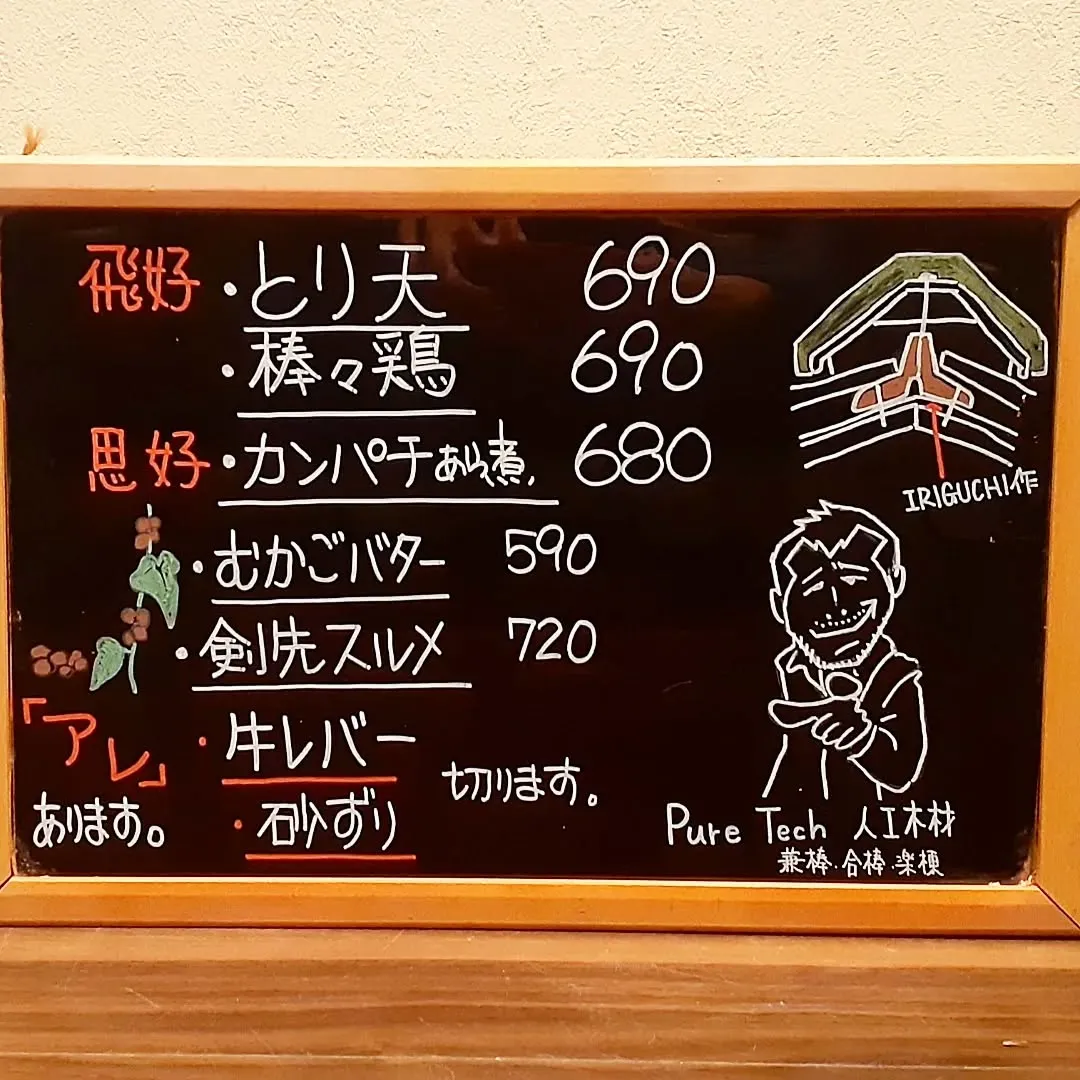 飛好・とり天 690
・棒々鶏 690
思好・カンパチあら煮、 680
・むかごバター 590
・剣先スルメ 720
「アレ」
あります。
・牛レバー
・砂ずり
切ります。
IRIGUCHI作
Pure Tech 人工木材
兼棒・合棒・楽梗